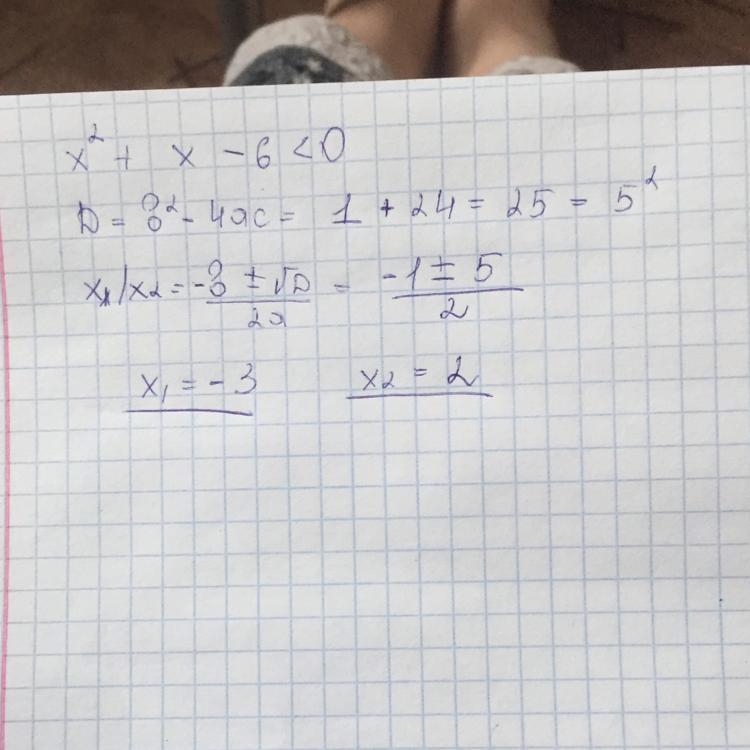 x² + x - 6 < 0
D = b² - 4ac = 1 + 24 = 25 = 5²
x₁/x₂ = (-b ± √D)/2a = (-1 ± 5)/2
x₁ = -3 x₂ = 2